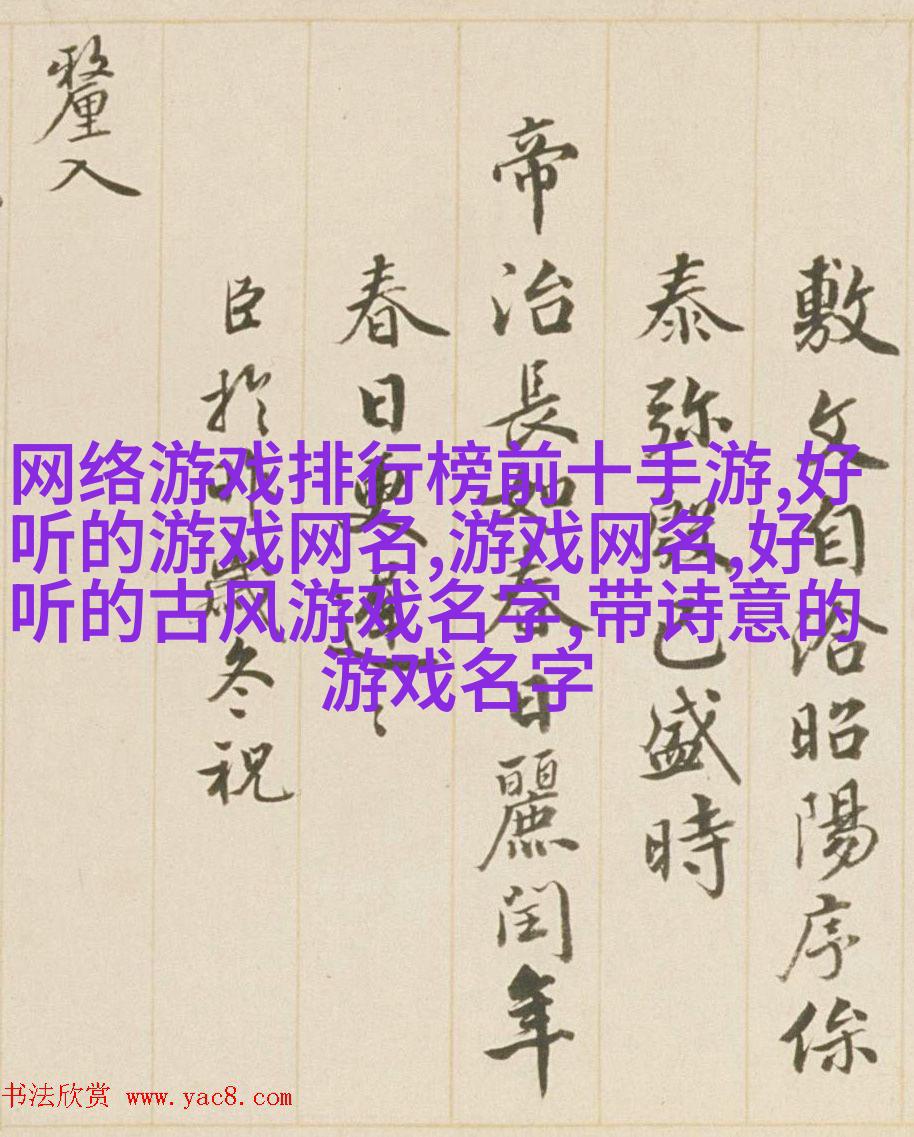 敷文自洽昭陽序
泰弥殷已盛時
帝治長如春日麗閏年
春日更遲〻
臣於昨歲冬祝
釐入
网络游戏排行榜前十手游,好
听的游戏网名,游戏网名,好
听的古风游戏名字,带诗意的
游戏名字
书法欣赏 www.yac8.com